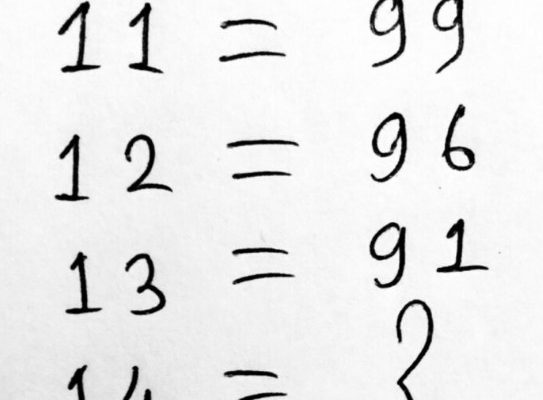 11 = 99
12 = 96
13 = 91
14 = ?